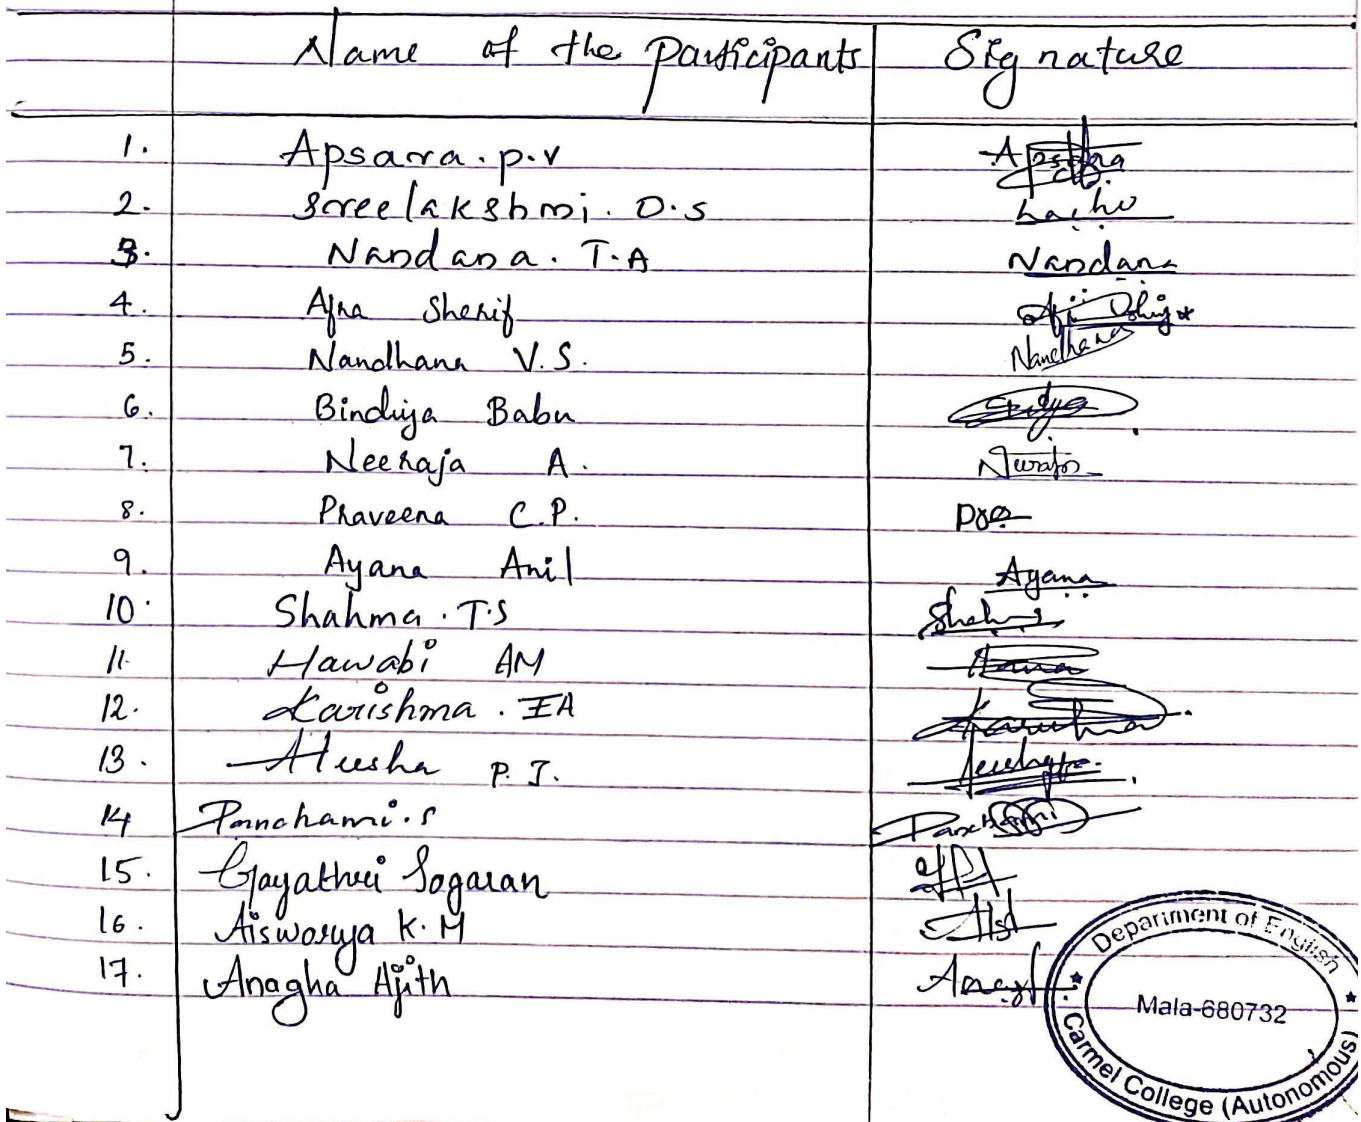 Name of the Participants Signature
1. Apsara. p.v Apsara
2. Sreelakshmi. O.S Lachu
3. Nandana. T.A Nandana
4. Afra Sherif
5. Nandhana V.S. Nandhana
6. Binduja Babu
7. Neeraja A. Neeraja
8. Praveena C.P. Pra
9. Ayana Anil Ayana
10. Shahma. T.S
11. Hawabi AM
12. Karishma. EA Karishma
13. Aleesha P.J.
14 Panchami.S Panchami
15. Gayathri Sagaran
16. Aiswarya K.M
17. Anagha Ajith
Department of English
Mala-680732
Carmel College (Autonomous)